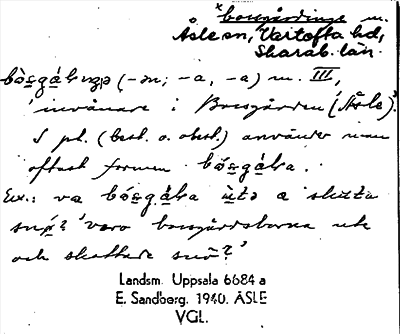 *bossgårdinge m.
Åsle sn, Vartofta hd,
Skarab. län.
(-m; -a, -a) m. III,
'invånare i Bossgården (Åsle)'.
I pl. (best. o. obest.) använder man
oftast formen
Ex.: va ute a skotta
snö? 'voro bossgårdsborna ute
och skottade snö?'
Landsm. Uppsala 6684 a
E. Sandberg. 1940. ÅSLE
VGL.